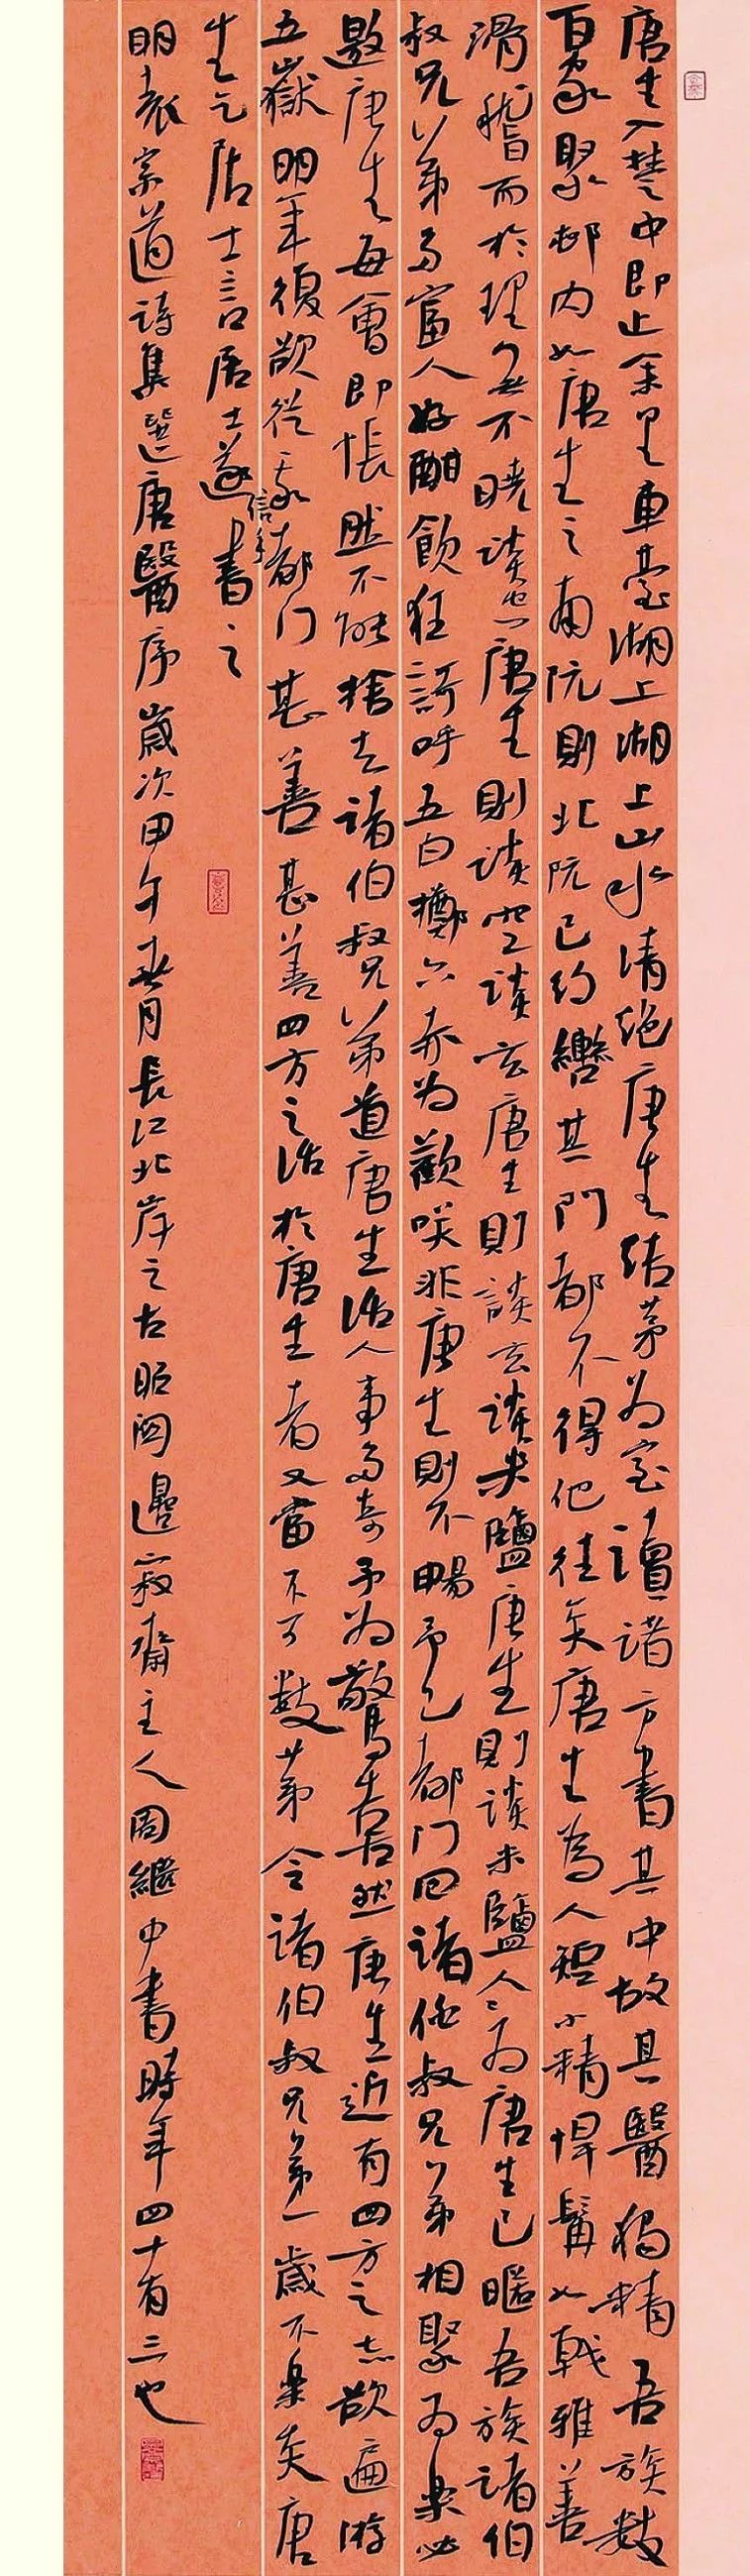 唐生入楚中即止余里車臺湖上湖上山水清絕唐生結茅為室讀諸方書其中故其醫獨精吾族數
百家聚邨內如唐生之南阮則北阮已約轡其門都不得他往矣唐生為人短小精悍髯如戟雅善
滑稽而於理無不曉談空唐生則談空談玄唐生則談玄談米鹽唐生則談米鹽人人為唐生已暱吾族諸伯
叔兄弟多富人好酣飲狂謌呼五白擲六赤為歡咲非唐生則不暢予已都門回諸伯叔兄弟相聚為樂必
邀唐生每會即悵然不能捨去諸伯叔兄弟道唐生活人事多奇予為驚喜然唐生近有四方之志欲遍游
五嶽明年復欲從我都門甚善甚善四方之活於唐生者又當不可數第令諸伯叔兄弟一歲不樂矣唐
生乞居士言居士遂信手書之
明袁宗道詩集選唐醫序歲次甲午春月長江北岸之古昭關邊寂齋主人周繼中書時年四十有三也